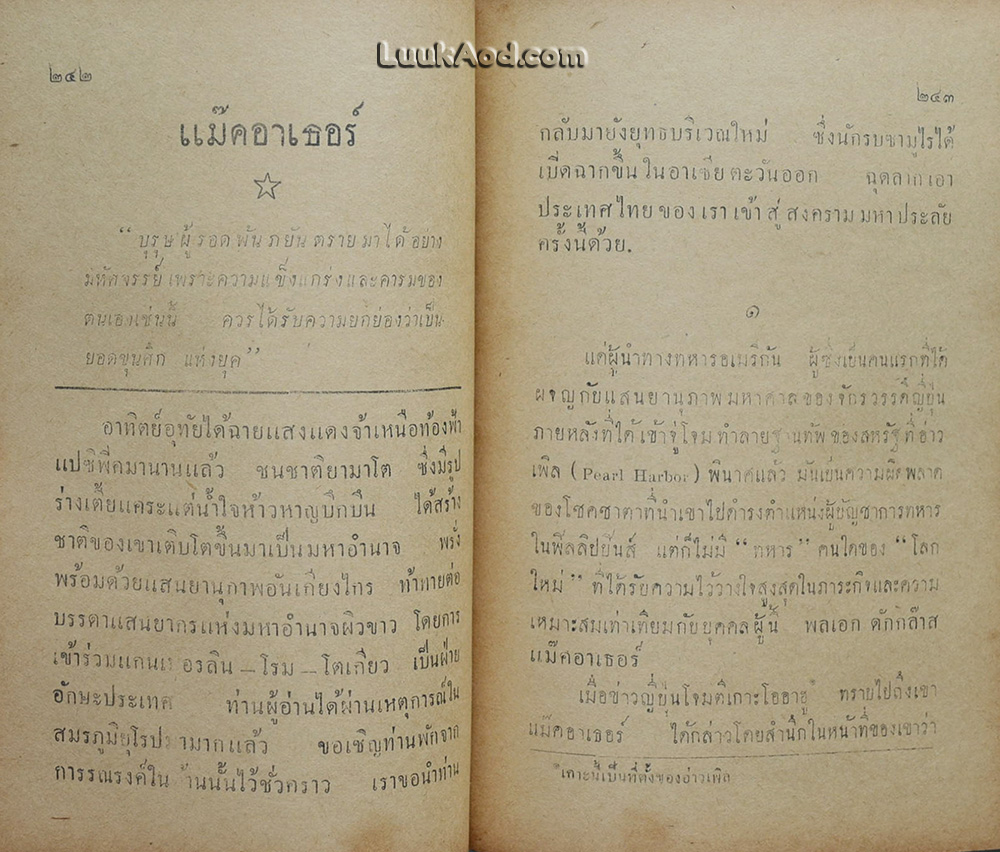 LuukAod.com
๒๔๒
แม๊คอาเธอร์
“บุรุษผู้รอดพ้นภยันตรายมาได้อย่าง
มหัศจรรย์ เพราะความแข็งแกร่งและคารมของ
ตนเองเช่นนี้ ควรได้รับความยกย่องว่าเป็น
ยอดขุนศึก แห่งยุค”
อาทิตย์อุทัยได้ฉายแสงแดงจ้าเหนือท้องฟ้า
แปซิฟิคมานานแล้ว ชนชาติยามาโต ซึ่งมีรูป
ร่างเตี้ยแคระแต่น้ำใจห้าวหาญบึกบึน ได้สร้าง
ชาติของเขาเติบโตขึ้นมาเป็นมหาอำนาจ พรั่ง
พร้อมด้วยแสนยานุภาพอันเกียงไกร ท้าทายต่อ
บรรดาแสนยากรแห่งมหาอำนาจผิวขาว โดยการ
เข้าร่วมแกนเบอรลิน – โรม – โตเกียว เป็นฝ่าย
อักษะประเทศ ท่านผู้อ่านได้ผ่านเหตุการณ์ใน
สมรภูมิยุโรป มามากแล้ว ขอเชิญท่านพักจาก
การรณรงค์ใน ด้านนั้นไว้ชั่วคราว เราขอนำท่าน
๒๔๓
กลับมายังยุทธบริเวณใหม่ ซึ่งนักรบซามูไรได้
เปิดฉากขึ้นในอาเซียตะวันออก ฉุดลากเอา
ประเทศไทยของเราเข้าสู่สงครามมหาประลัย
ครั้งนี้ด้วย.
๑
แต่ผู้นำทางทหารอเมริกัน ผู้ซึ่งเป็นคนแรกที่ได้
ผจญกับแสนยานุภาพมหาศาลของจักรวรรดิญี่ปุ่น
ภายหลังที่ได้เข้าจู่โจมทำลายฐานทัพของสหรัฐที่อ่าว
เพิล (Pearl Harbor) พินาศแล้ว มันเป็นความผิดพลาด
ของโชคชาตาที่นำเขาไปดำรงตำแหน่งผู้บัญชาการทหาร
ในฟิลลิปปินส์ แต่ก็ไม่มี “ทหาร” คนใดของ “โลก
ใหม่” ที่ได้รับความไว้วางใจสูงสุดในภาระกิจและความ
เหมาะสมเท่าเทียมกับบุคคลผู้นี้ พลเอก ดักกล๊าส
แม๊คอาเธอร์
เมื่อข่าวญี่ปุ่นโจมตีเกาะโออาฮู* ทราบไปถึงเขา
แม๊คอาเธอร์ ได้กล่าวโดยสำนึกในหน้าที่ของเขาว่า
*เกาะนี้เป็นที่ตั้งของอ่าวเพิล